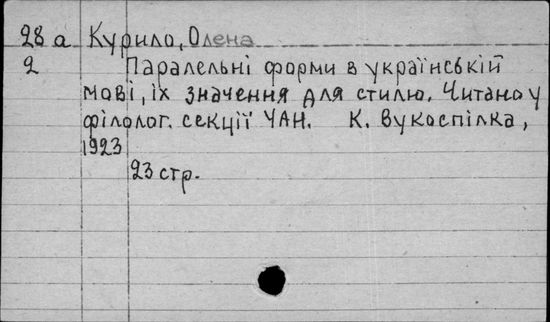 28 а Курило, Олена
2 Паралельні форми в українській
мові, їх значення для стилю. Читано у
філолог. секції УАН. К. Вукоспілка,
1923
23 стр.